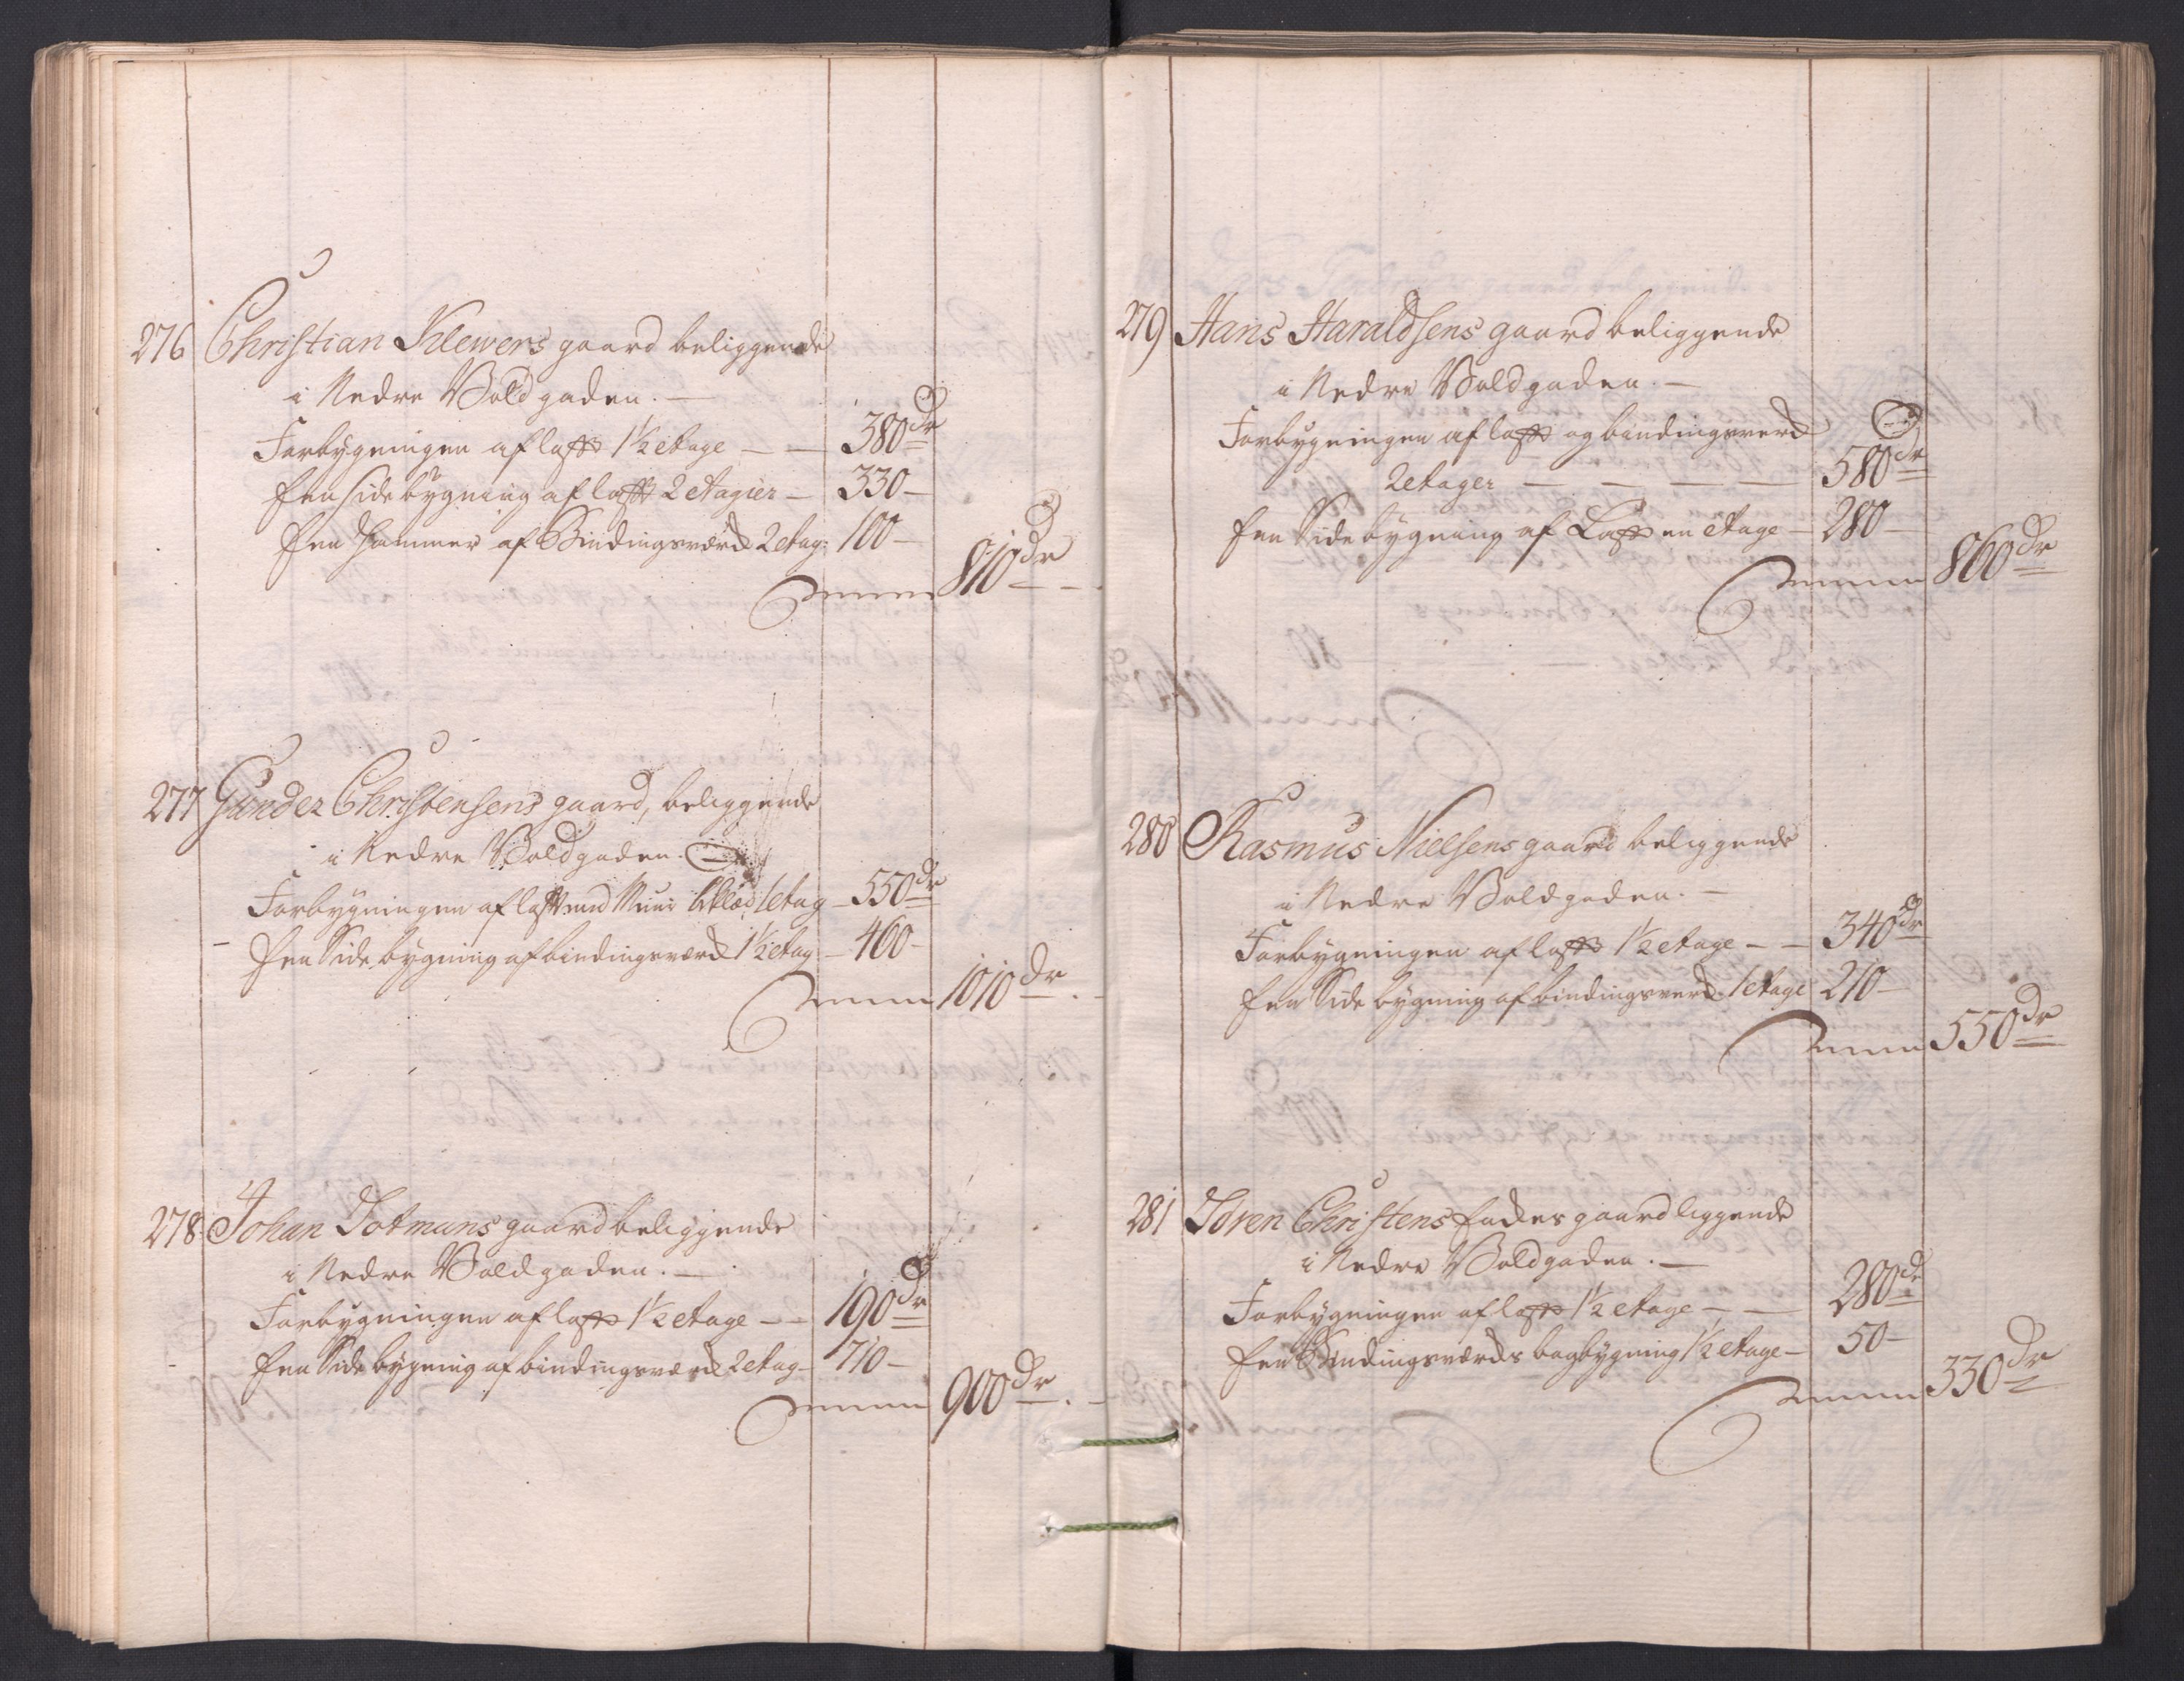 276 Christian Klewers gaard beliggende
i Nedre Voldgaden. —
Forbygningen af laft 1½ etage — — 380 dr
Een sidebygning af laft 2 etagier — 330 —
Een Hammer af Bindingsværk 2 etag: 100 —
Summa 810 dr
277 Gunder Christensens gaard, beliggende
i Nedre Voldgaden. —
Forbygningen af laft med Muur bklæd 1 etag — 550 dr
Een Sidebygning af bindingsværk 1½ etag — 460 —
Summa 1010 dr
278 Johan Totmans gaard beliggende
i Nedre Voldgaden. —
Forbygningen af laft 1½ etage — — 190 dr
Een Sidebygning af bindingsværk 2 etag — 710 —
Summa 900 dr
279 Hans Haraldsens gaard beliggende
i Nedre Voldgaden. —
Forbygningen af laft og bindingsverk
2 etager — — — — 580 dr
Een Sidebygning af Laft en etage — 280 —
Summa 860 dr
280 Rasmus Nielsens gaard beliggende
i Nedre Voldgaden. —
Forbygningen af laft 1½ etage — — 340 dr
Een Sidebygning af bindingsverk 1 etage 210 —
Summa 550 dr
281 Søren Christens gaard liggende
i Nedre Voldgaden. —
Forbygningen af laft 1½ etage — — 280 dr
Een Bindingsværks bagbygning ½ etage — 50 —
Summa 330 dr